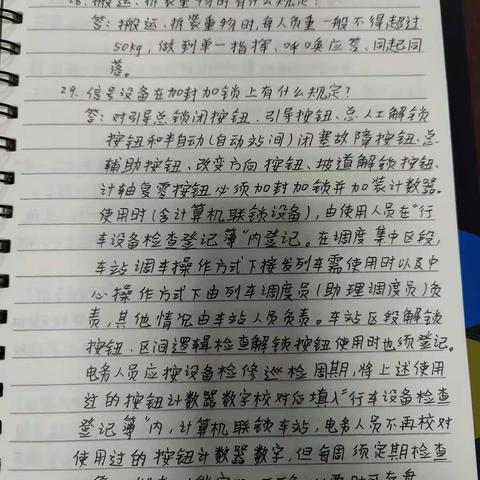 28. 搬运、拆装重物时有什么规定?
答: 搬运、拆装重物时,每人负重一般不得超过
50kg, 做到单一指挥、呼唤应答、同起同
落。
29. 信号设备在加封加锁上有什么规定?
答: 对引导总锁闭按钮、引导按钮、总人工解锁
按钮和半自动(自动站间)闭塞故障按钮、总
辅助按钮、改变方向按钮、坡道解锁按钮、
计轴复零按钮必须加封加锁并加装计数器。
使用时(含计算机联锁设备),由使用人员在“行
车设备检查登记簿”内登记。在调度集中区段,
车站调车操作方式下接发列车需使用时以及中
心操作方式下由列车调度员(助理调度员)负
责,其他情况由车站人员负责。车站区段解锁
按钮、区间逻辑检查解锁按钮使用时也须登记。
电务人员应按设备检修巡检周期,将上述使用
过的按钮计数器数字校对后填入“行车设备检查
登记簿”内,计算机联锁车站,电务人员不再校对
使用过的按钮计数器数字,但每周须定期检查